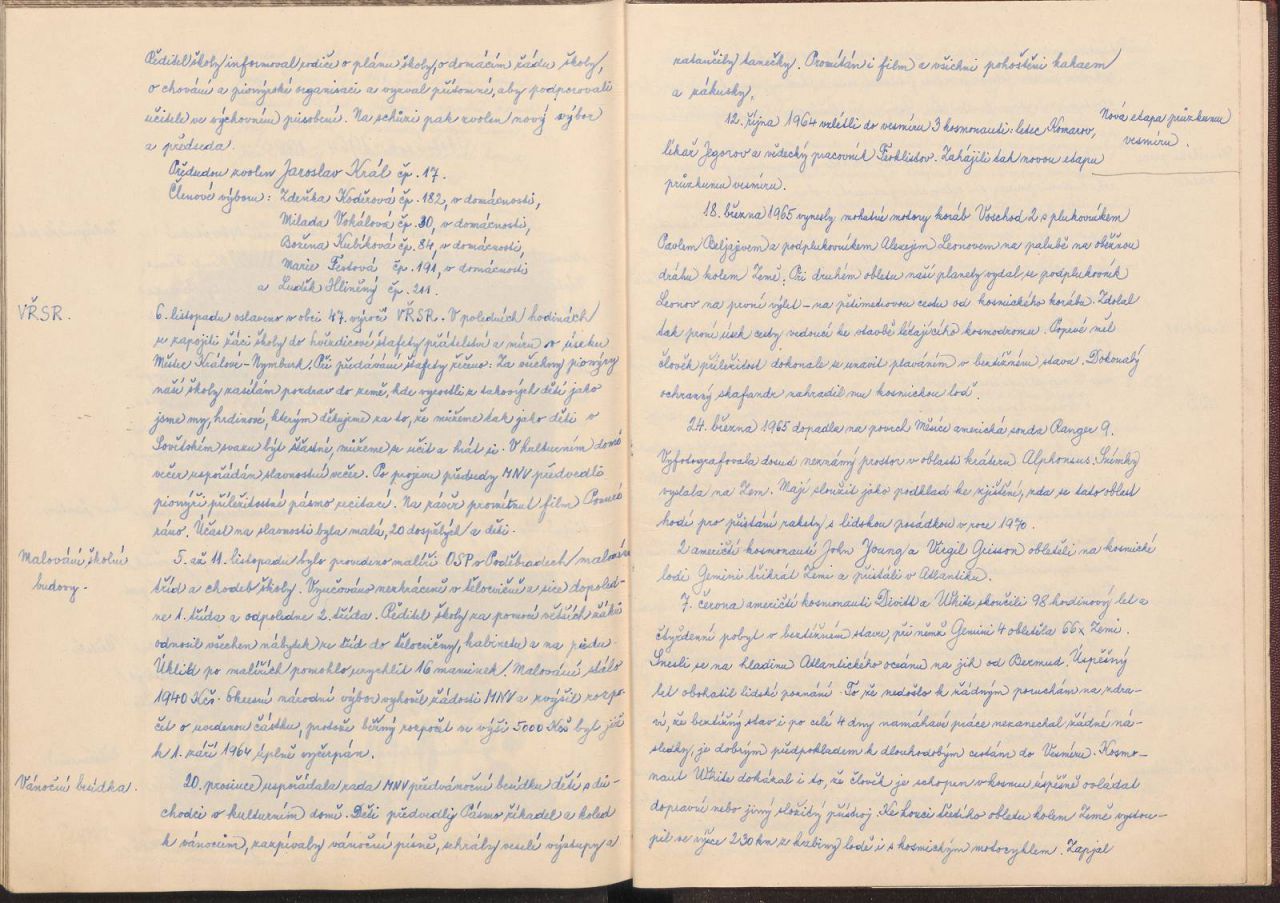 Ředitel školy informoval rodiče o plánu školy, o domácím řádu školy,
o chování a pionýrské organisaci a vyzval přítomné, aby podporovali
učitele ve výchovném působení. Na schůzi pak zvolen nový výbor
a předseda.
Předsedou zvolen Jaroslav Král čp. 17.
Členové výboru: Zdeňka Koděrová čp. 182, v domácnosti,
Milada Vokálová čp. 30, v domácnosti,
Božena Kubíková čp. 84, v domácnosti,
Marie Fertová čp. 191, v domácnosti
a Luděk Hliněný čp. 211.
VŘSR.
6. listopadu oslaveno v obci 47. výročí VŘSR. V poledních hodinách
se zapojili žáci školy do hvězdicové štafety přátelství a míru v úseku
Městec Králové - Nymburk. Při předávání štafety řečeno: Za pionýry
naší školy zasílám pozdrav do země, kde vyrostli z takových dětí jako
jsme my, hrdinové, kterým děkujeme za to, že můžeme tak jako děti v
Sovětském svazu být šťastné, můžeme se učit a hrát si. V kulturním domě
večer uspořádán slavnostní večer. Po projevu předsedy MNV předvedli
pionýři příležitostné pásmo recitací. Na závěr promítnut film
ráno. Účast na slavnosti byla malá, 20 dospělých a děti.
Malování školní
budovy.
5. až 11. listopadu bylo provedeno malíři OSP v Poděbradech malování
tříd a chodeb školy. Vyučováno nezkráceně v tělocvičně a sice dopoled-
ne 1. třída a odpoledne 2. třída. Ředitel školy za pomoci větších žáků
odnosil všechen nábytek ze tříd do tělocvičny, kabinetu a na půdu.
Úklid po malířích pomohlo urychlit 16 maminek. Malování stálo
1940 Kčs. Okresní národní výbor vyhověl žádosti MNV a zvýšil rozpo-
čet o uvedenou částku, protože běžný rozpočet ve výši 5000 Kčs byl již
k 1. září 1964 úplně vyčerpán.
Vánoční besídka.
20. prosince uspořádala rada MNV předvánoční besídku dětí s dů-
chodci v kulturním domě. Děti předvedly Pásmo říkadel a koled
k vánocům, zazpívaly vánoční písně, sehrály veselé výstupy a
zatančily tanečky. Promítán i film a všichni pohoštěni kakaem
a zákusky.
Nová etapa průzkumu
vesmíru.
12. října 1964 vzlétli do vesmíru 3 kosmonauti: letec Komarov,
lékař Jegorov a vědecký pracovník Feoktistov. Zahájili tak novou etapu
průzkumu vesmíru.
18. března 1965 vynesly mohutné motory koráb Voschod 2 s plukovníkem
Pavlem Beljajevem a podplukovníkem Alexejem Leonovem na palubě na oběžnou
dráhu kolem Země. Při druhém obletu naší planety vydal se podplukovník
Leonov na první výlet - na pětimetrovou cestu od kosmického korábu. Zdolal
tak první úsek cesty vedoucí ke stavbě létajícího kosmodromu. Poprvé měl
člověk příležitost dokonale se unavit plaváním v beztížném stavu. Dokonalý
ochranný skafandr nahradil mu kosmickou loď.
24. března 1965 dopadla na povrch Měsíce americká sonda Ranger 9.
Vyfotografovala dosud neznámý prostor v oblasti kráteru Alphonsus. Snímky
vyslala na Zem. Mají sloužit jako podklad ke zjištění, zda se tato oblast
hodí pro přistání rakety s lidskou posádkou v roce 1970.
2 američtí kosmonauti John Young a Virgil Grisson obletěli na kosmické
lodi Gemini třikrát Zemi a přistáli v Atlantiku.
7. června američtí kosmonauti Divitt a White skončili 98 hodinový let a
čtyřdenní pobyt v beztížném stavu, při němž Gemini 4 obletěla 66x Zemi.
Snesli se na hladinu Atlantického oceánu na jih od Bermud. Úspěšný
let obohatil lidské poznání. To že nedošlo k žádným poruchám na zdra-
ví, že beztížný stav i po celé 4 dny namáhavé práce nezanechal žádné ná-
sledky, je dobrým předpokladem k dlouhodobým cestám do Vesmíru. Kosmo-
naut White dokázal i to, že člověk je schopen v kosmu úspěšně ovládat
dopravní nebo jiný složitý přístroj. Ke konci třetího obletu kolem Země vystou-
pil ve výšce 230 km z kabiny lodě i s kosmickým motocyklem. Zapjal